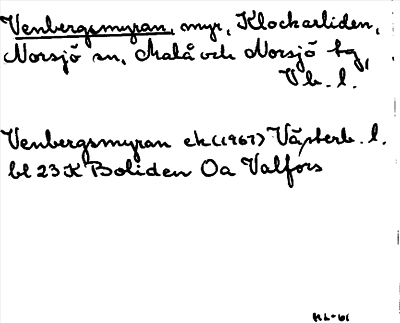 Venbergsmyran, myr, Klockarliden,
Norsjö sn, Malå och Norsjö tg,
Vb. l.
Venbergsmyran ek (1967) Västerb. l.
bl 23 K Boliden Oa Valfors